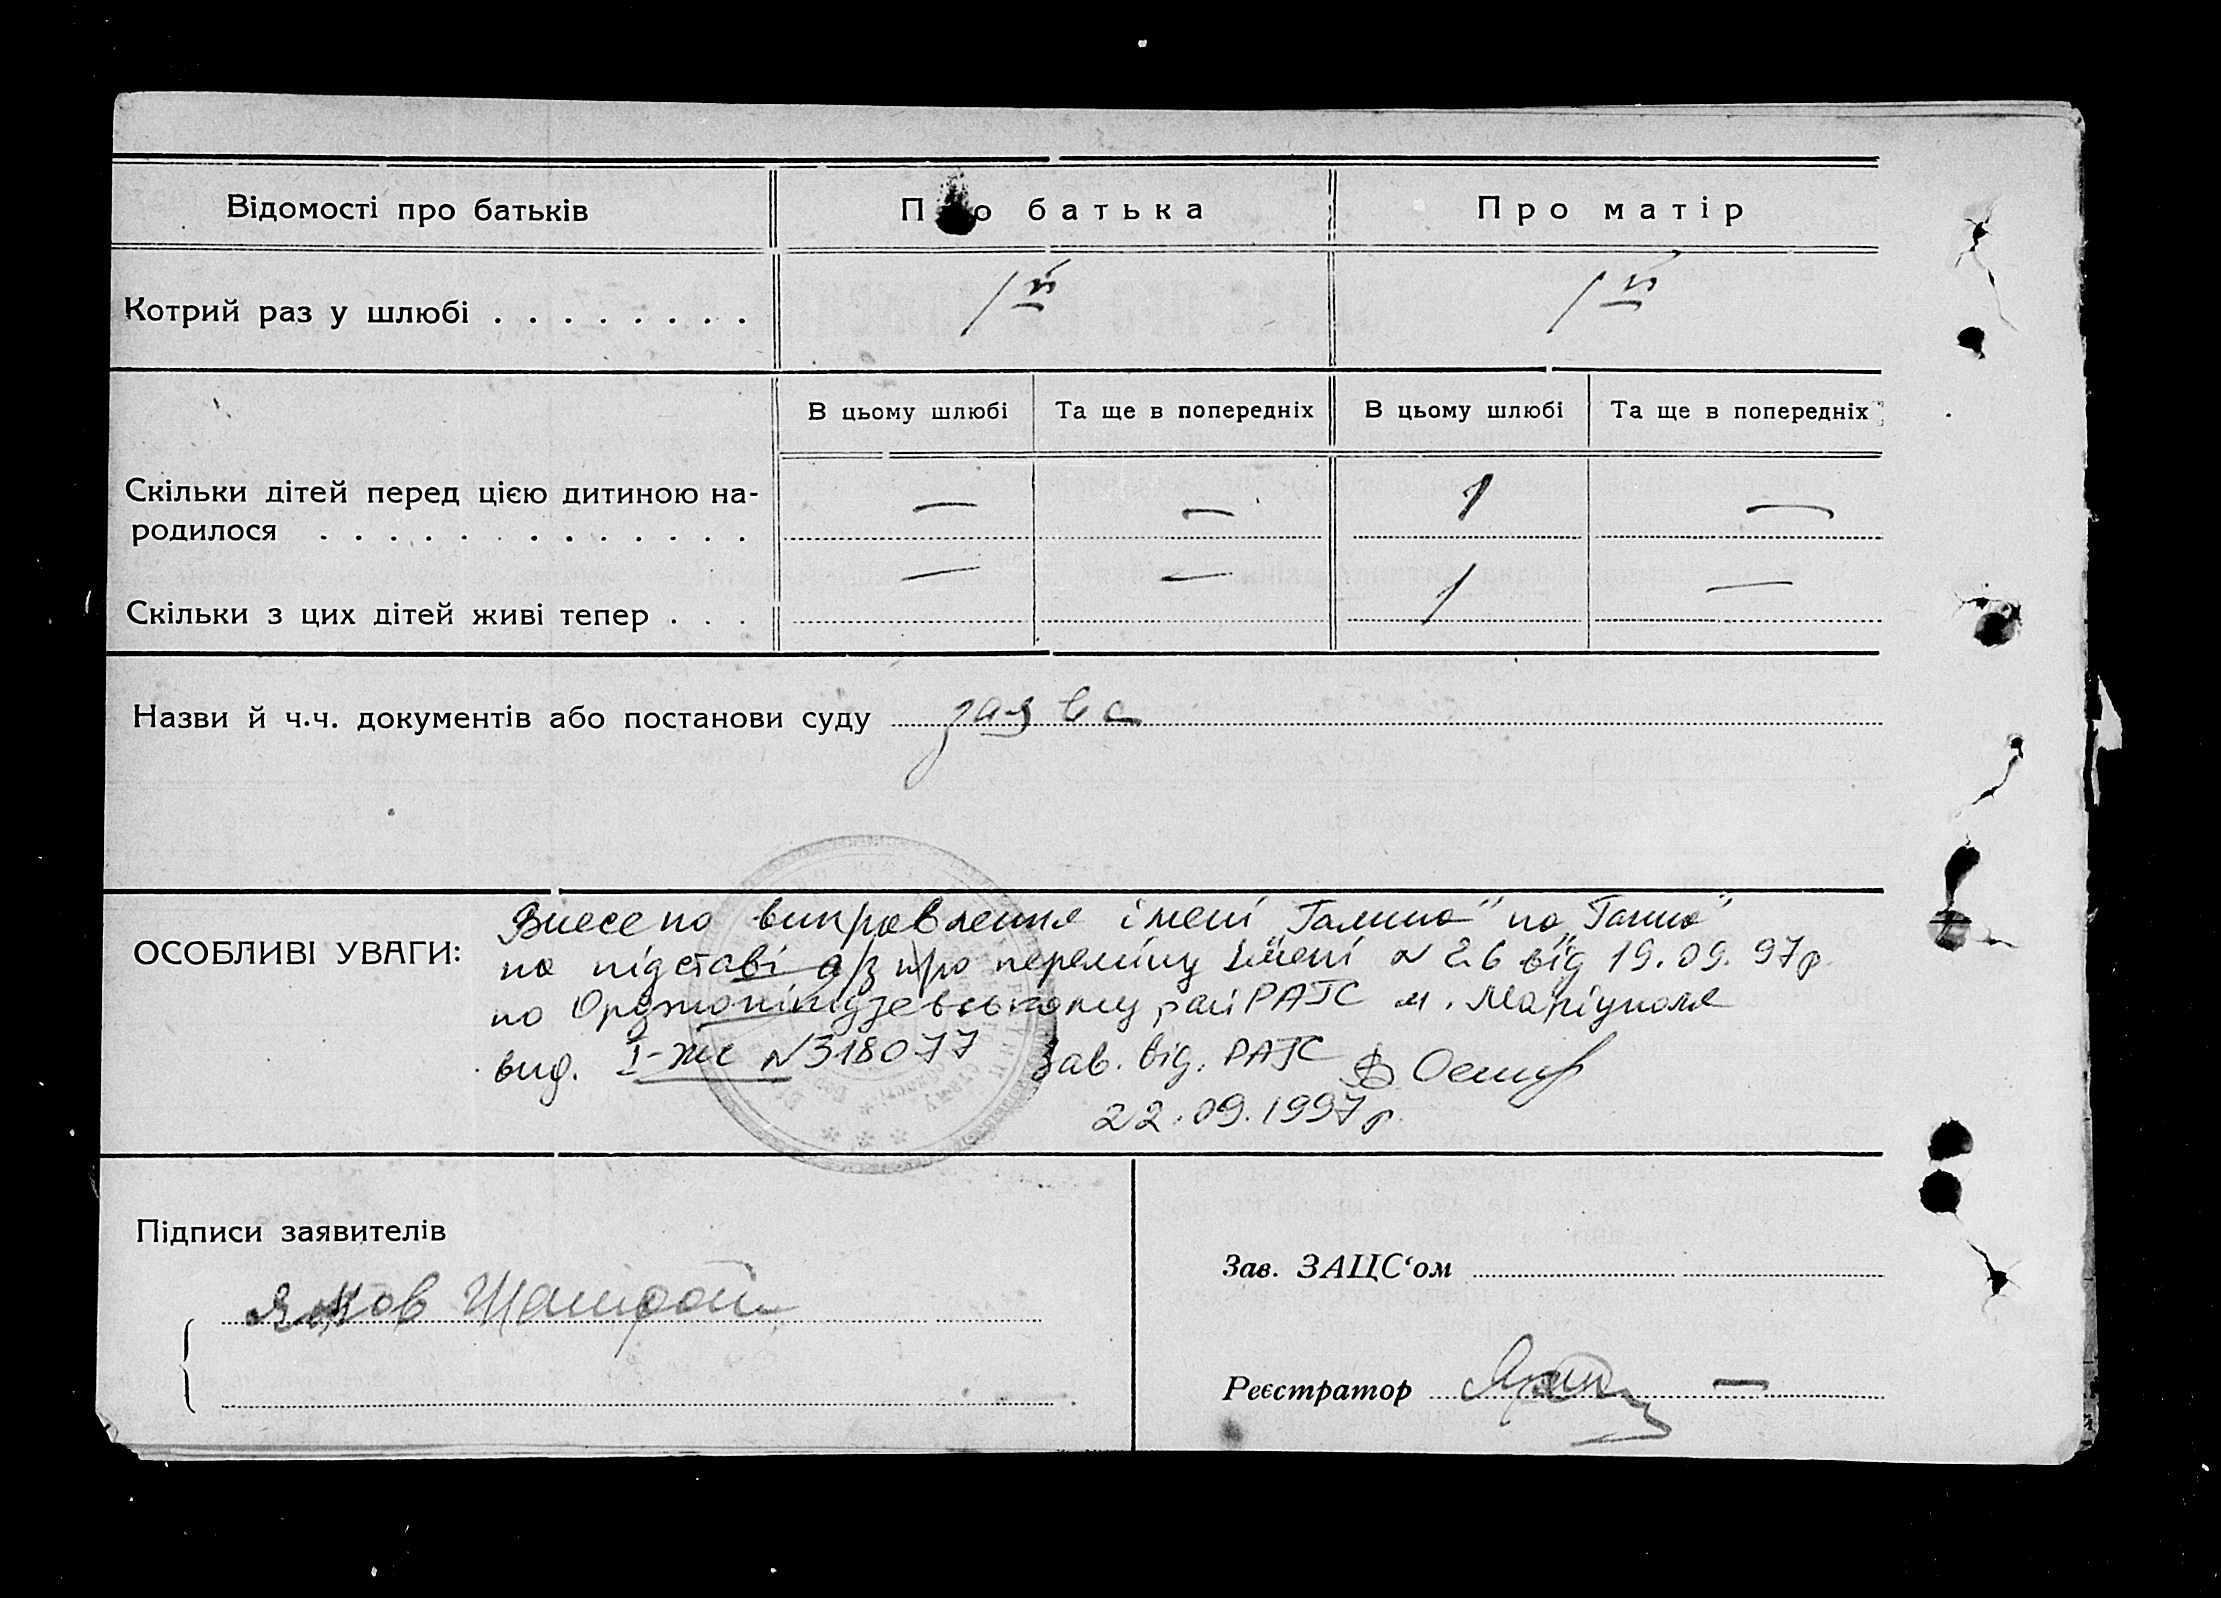 Відомості про батьків
Про батька
Про матір
Котрий раз у шлюбі . . . . . . . .
1й
1й
В цьому шлюбі
Та ще в попередніх
В цьому шлюбі
Та ще в попередніх
Скільки дітей перед цією дитиною на-
родилося . . . . . . . . . . . . .
— — 1 —
Скільки з цих дітей живі тепер . . .
— — 1 —
Назви й ч.ч. документів або постанови суду заява
ОСОБЛИВІ УВАГИ:
Внесено виправлення імені „Галина" на „Ганна"
на підставі а/з про переміну імені № 26 від 19.09.97р
по Орджонікідзевському райРАГС м. Маріуполя
вид. I-жс №318077 Зав. від. РАГС
22.09.1997р.
Підписи заявителів
Яков
Зав. ЗАЦС‘ом
Реєстратор —